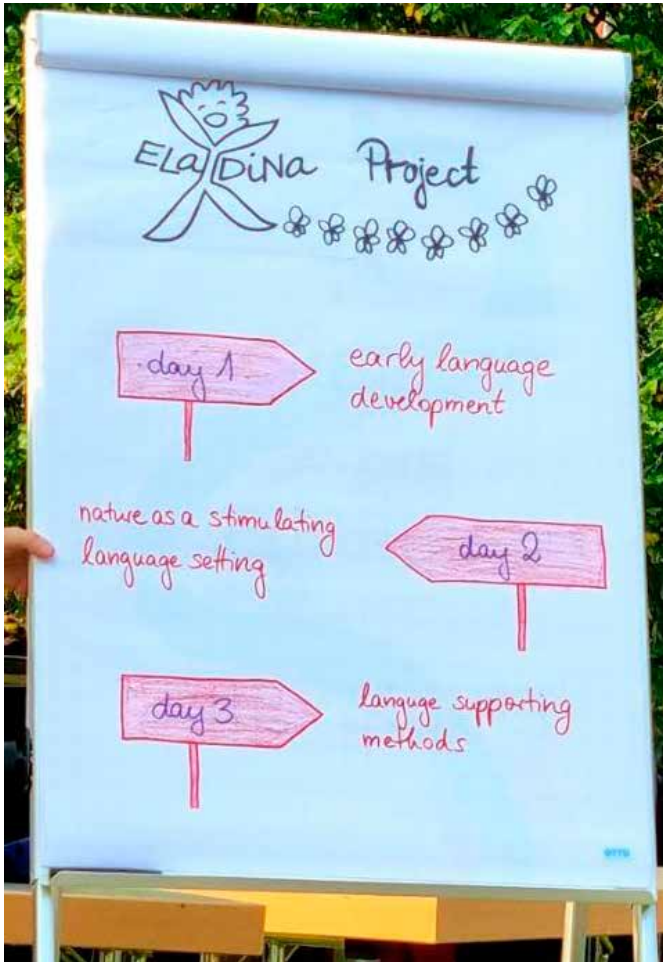 ELaDiNa Project
day 1
early language
development
nature as a stimulating
language setting
day 2
day 3
languge supporting
methods